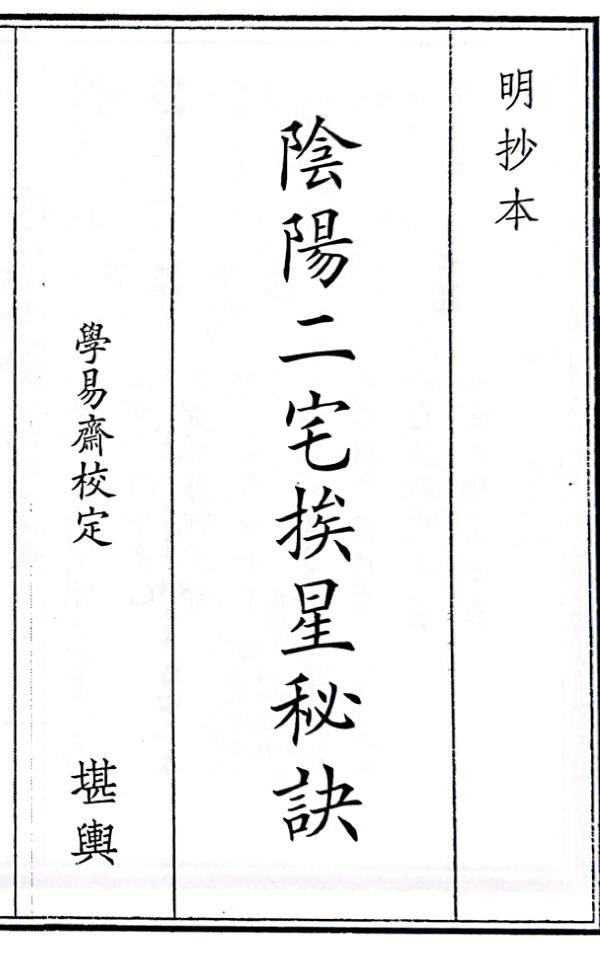 明抄本
陰陽二宅挨星秘訣
學易齋校定
堪輿